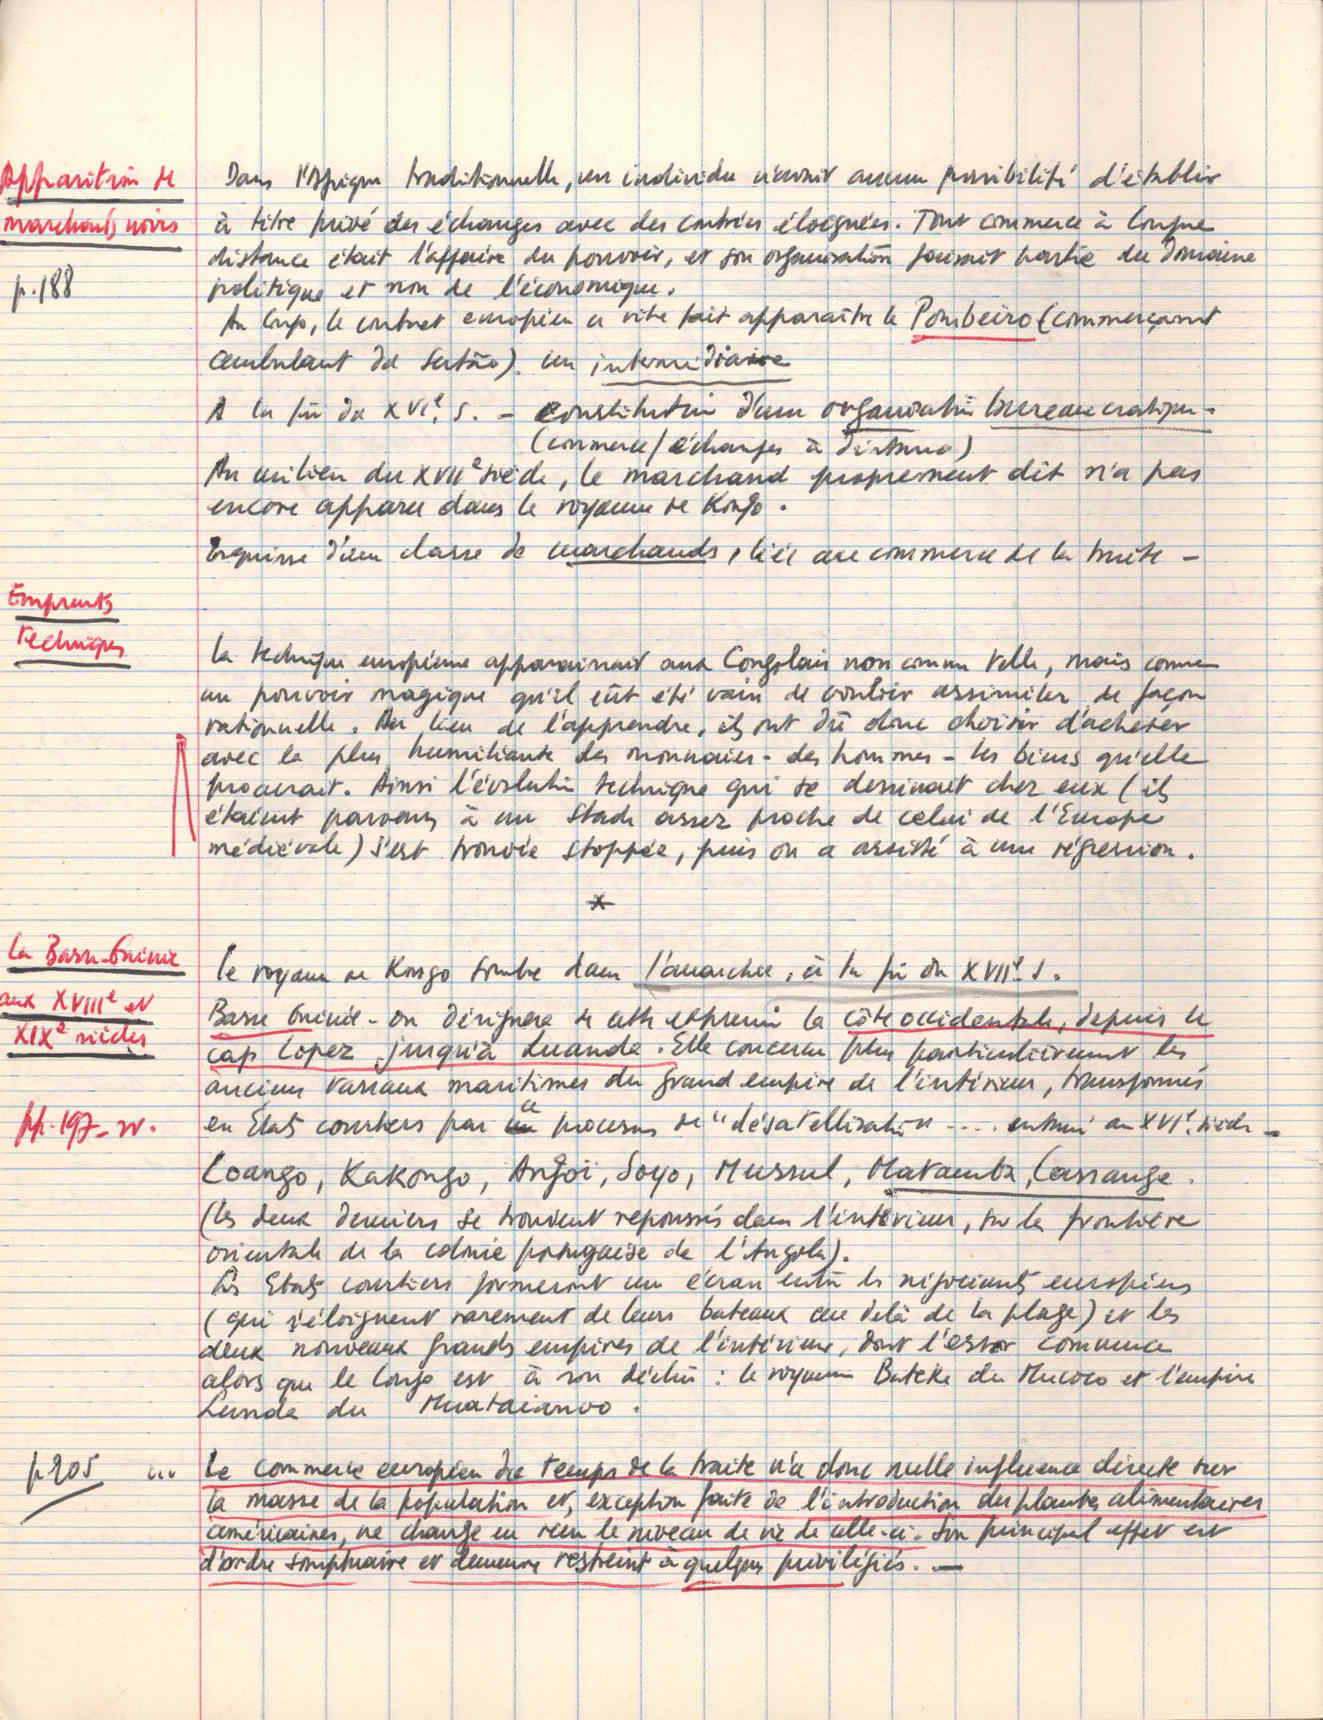 Apparition de
marchands noirs
p. 188
Dans l'Afrique traditionnelle, un individu n'avait aucune possibilité d'établir
à titre privé des échanges avec des contrées éloignées. Tout commerce à longue
distance était l'affaire du pouvoir, et son organisation faisait partie du domaine
politique et non de l'économique.
Au Congo, le contact européen a vite fait apparaître le Pombeiro (commerçant
ambulant du Sertão). un intermédiaire
A la fin du XVIe. s. - constitution d'une organisation bureaucratique -
(commerce / échanges à distance)
Au milieu du XVIIe siècle, le marchand proprement dit n'a pas
encore apparu dans le royaume de Kongo.
Esquisse d'une classe de marchands, liée au commerce de la traite -
Emprunts
techniques
La technique européenne apparaissait aux Congolais non comme telle, mais comme
un pouvoir magique qu'il eût été vain de vouloir assimiler de façon
rationnelle. Au lieu de l'apprendre, ils ont dû donc choisir d'acheter
avec la plus humiliante des monnaies - des hommes - les biens qu'elle
procurait. Ainsi l'évolution technique qui se dessinait chez eux (ils
étaient parvenus à un stade assez proche de celui de l'Europe
médiévale) s'est trouvée stoppée, puis on a assisté à une régression.
*
La Basse-Guinée
aux XVIIIe et
XIXe siècles
Le royaume de Kongo sombre dans l'anarchie, à la fin du XVIIe. s.
Basse Guinée - on désignera de cette expression la côte occidentale, depuis le
cap Lopez jusqu'à Luanda. Elle concerne plus particulièrement les
anciens vassaux maritimes du grand empire de l'intérieur, transformés
pp. 197-
en États courtiers par ce processus de "désatellisation .... entamé au XVIe. siècle -
Loango, Kakongo, Angoi, Soyo, Mussul, Matamba, Cassange.
(les deux derniers se trouvent repoussés dans l'intérieur, sur la frontière
orientale de la colonie portugaise de l'Angola).
Les Etats courtiers formeront un écran entre les négociants européens
(qui s'éloignent rarement de leurs bateaux au delà de la plage) et les
deux nouveaux grands empires de l'intérieur, dont l'essor commence
alors que le Congo est à son déclin : le royaume Bateke du Mucoco et l'empire
Lunda du Muataianvo.
p 205 ... Le commerce européen du temps de la traite n'a donc nulle influence directe sur
la masse de la population et, exception faite de l'introduction des plantes alimentaires
américaines, ne change en rien le niveau de vie de celle-ci. Son principal effet est
d'ordre somptuaire et demeure restreint à quelques privilégiés. -